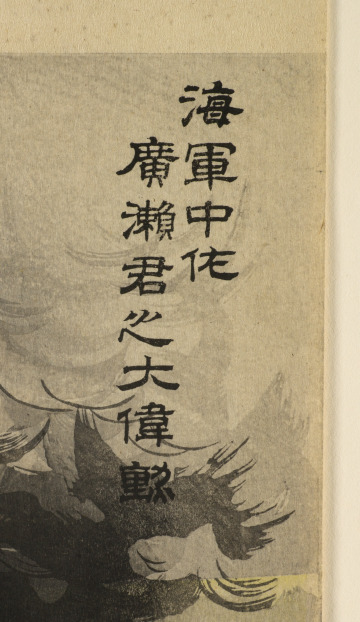 海軍中佐
廣瀬君之大偉勲